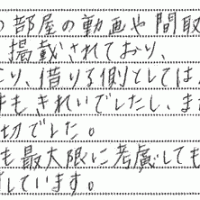 の部屋の動画や間取
掲載されており、
り、借りる側としては
もきれいでしたし、また
切でした。
も最大限に考慮しても
しています。